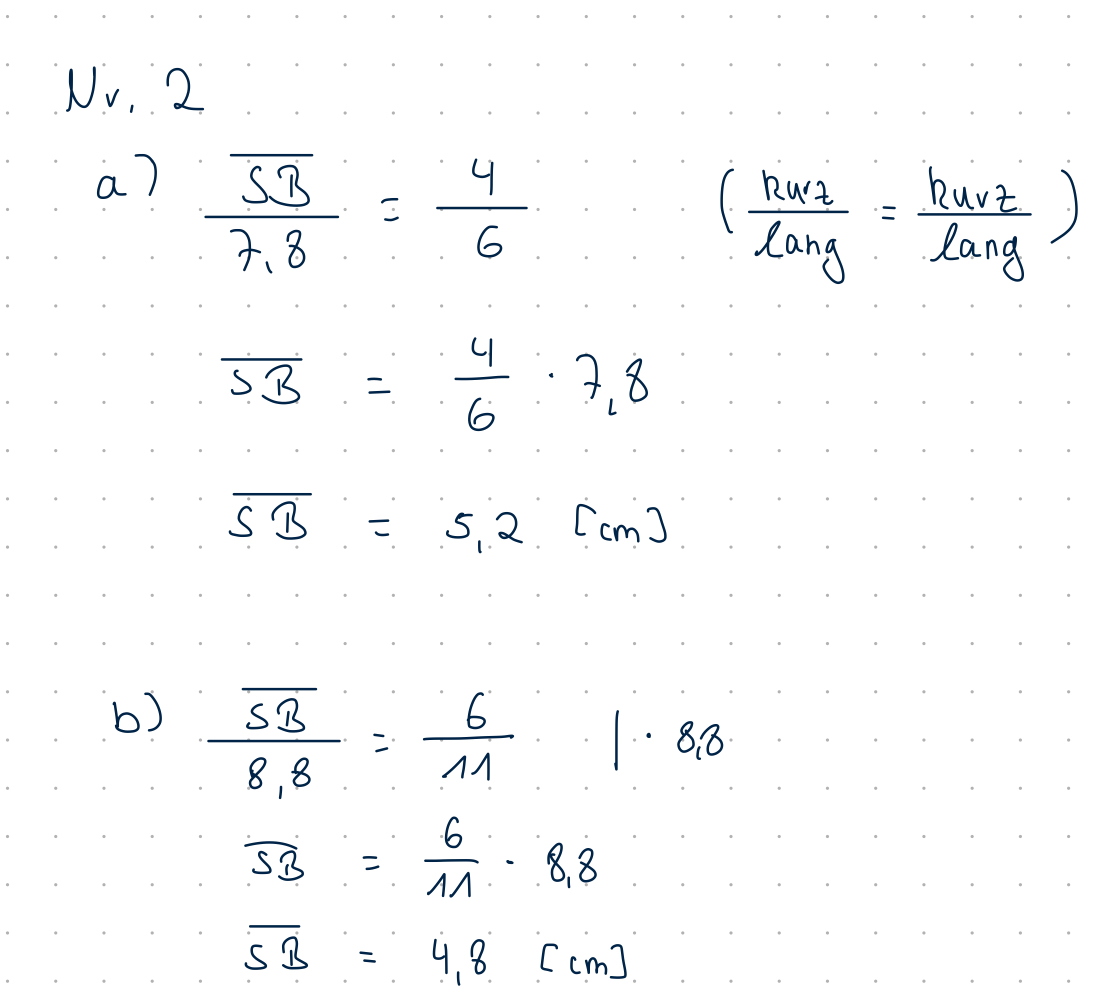 Nr. 2
a) \frac{\overline{SB}}{7,8} = \frac{4}{6} (\frac{kurz}{lang} = \frac{kurz}{lang})
\overline{SB} = \frac{4}{6} · 7,8
\overline{SB} = 5,2 [cm]
b) \frac{\overline{SB}}{8,8} = \frac{6}{11} | · 8,8
\overline{SB} = \frac{6}{11} · 8,8
\overline{SB} = 4,8 [cm]